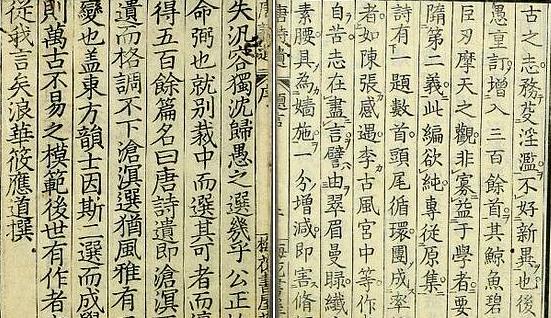 古之志務芟淫濫不好新異也後
愚重訂增入三百餘首其鯨魚碧
巨刃摩天之觀非寡益于學者要
隋第二義此編欲純專從原集
詩有一題數首頭尾循環團成率
者如陳張感遇李古風宮中等作
自苦志在盡言譬由翠眉曼睩纖
素腰其為嬙施一分增減即害脩
唐詩遺
序
失汎容獨沈歸愚之選幾乎公正
命弼也就別裁中而選其可者而
得五百餘篇名曰唐詩遺即滄溟
遺而格調不下滄溟選猶風雅有
變也盖東方韻士因斯二選而成
則萬古不易之模範後世有作者
從我言矣浪華筱應道撰